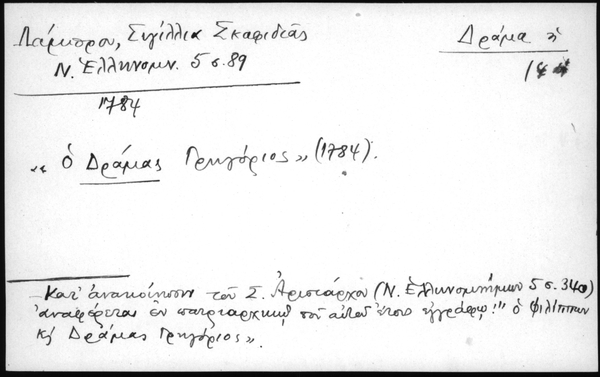 Λάμπρου, Σιγίλλια Σκαφιδιᾶς
Δράμα ἡ
Ν. Ἑλληνομν. 5 σ. 89
14
1784
„ ὁ Δράμας Γρηγόριος” (1784).
Κατ' ἀνακοίνωσιν τοῦ Σ. Ἀριστάρχου (Ν. Ἑλληνομνήμων 5 σ. 340)
ἀναφέρεται ἐν πατριαρχικῷ τοῦ αὐτοῦ ἔτους ἐγγράφῳ: „ ὁ Φιλίππων
κὶ Δράμας Γρηγόριος”.